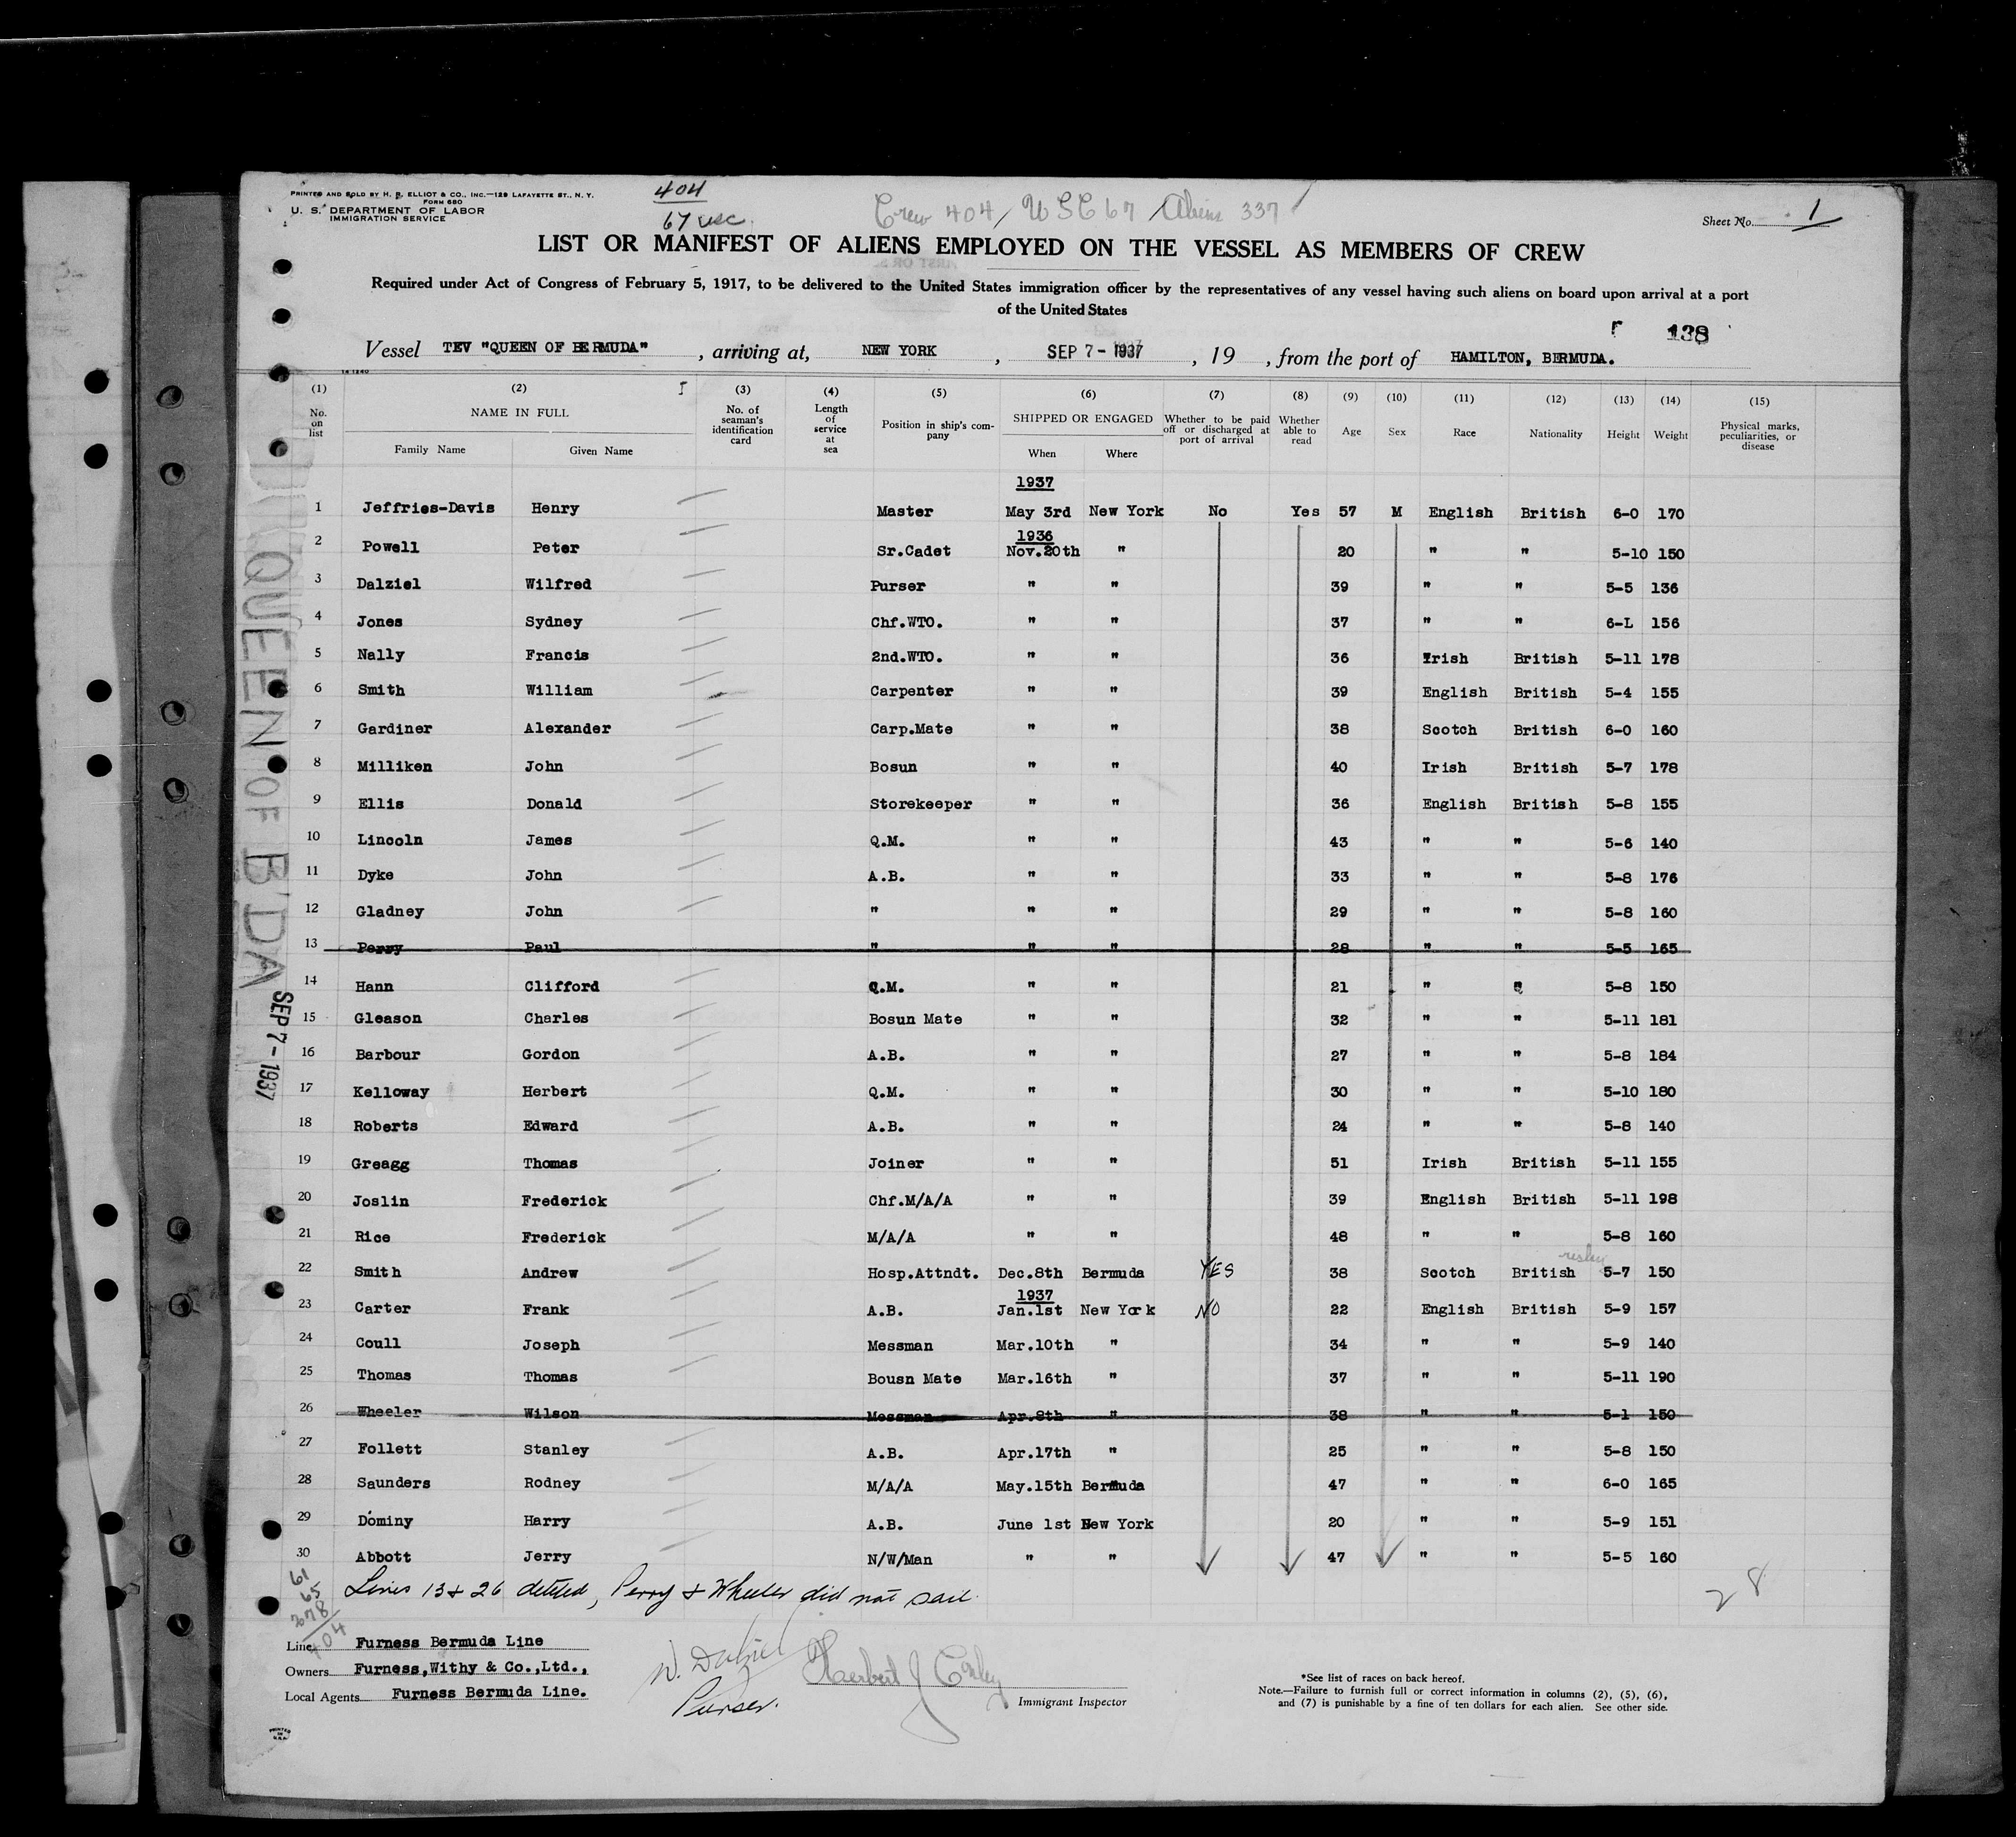 PRINTED AND SOLD BY H. B. ELLIOT & CO., INC.—129 LAFAYETTE ST., N. Y.
FORM 680
U. S. DEPARTMENT OF LABOR
IMMIGRATION SERVICE
404
67 usc
Crew 404 / USC 67 / Aliens 337
Sheet No. 1
LIST OR MANIFEST OF ALIENS EMPLOYED ON THE VESSEL AS MEMBERS OF CREW
Required under Act of Congress of February 5, 1917, to be delivered to the United States immigration officer by the representatives of any vessel having such aliens on board upon arrival at a port
of the United States
138
Vessel TEV "QUEEN OF BERMUDA", arriving at, NEW YORK, SEP 7 - 1937, 19 , from the port of HAMILTON, BERMUDA.
14 1240
(1) (2) (3) (4) (5) (6) (7) (8) (9) (10) (11) (12) (13) (14) (15)
No. on list NAME IN FULL Family Name Given Name No. of seaman's identification card Length of service at sea Position in ship's company SHIPPED OR ENGAGED When Where Whether to be paid off or discharged at port of arrival Whether able to read Age Sex Race Nationality Height Weight Physical marks, peculiarities, or disease
1937
1 Jeffries-Davis Henry Master May 3rd New York No Yes 57 M English British 6-0 170
1936
2 Powell Peter Sr.Cadet Nov.20th " 20 " " 5-10 150
3 Dalziel Wilfred Purser " " 39 " " 5-5 136
4 Jones Sydney Chf.WTO. " " 37 " " 6-L 156
5 Nally Francis 2nd.WTO. " " 36 Irish British 5-11 178
6 Smith William Carpenter " " 39 English British 5-4 155
7 Gardiner Alexander Carp.Mate " " 38 Scotch British 6-0 160
8 Milliken John Bosun " " 40 Irish British 5-7 178
9 Ellis Donald Storekeeper " " 36 English British 5-8 155
10 Lincoln James Q.M. " " 43 " " 5-6 140
11 Dyke John A.B. " " 33 " " 5-8 176
12 Gladney John " " " 29 " " 5-8 160
13 Perry Paul " " " 28 " " 5-5 165
14 Hann Clifford Q.M. " " 21 " " 5-8 150
15 Gleason Charles Bosun Mate " " 32 " " 5-11 181
16 Barbour Gordon A.B. " " 27 " " 5-8 184
17 Kelloway Herbert Q.M. " " 30 " " 5-10 180
18 Roberts Edward A.B. " " 24 " " 5-8 140
19 Greagg Thomas Joiner " " 51 Irish British 5-11 155
20 Joslin Frederick Chf.M/A/A " " 39 English British 5-11 198
21 Rice Frederick M/A/A " " 48 " " 5-8 160
22 Smith Andrew Hosp.Attndt. Dec.8th Bermuda YES 38 Scotch British 5-7 150
1937
23 Carter Frank A.B. Jan.1st New York NO 22 English British 5-9 157
24 Coull Joseph Messman Mar.10th " 34 " " 5-9 140
25 Thomas Thomas Bousn Mate Mar.16th " 37 " " 5-11 190
26 Wheeler Wilson Messman Apr.8th " 38 " " 5-1 150
27 Follett Stanley A.B. Apr.17th " 25 " " 5-8 150
28 Saunders Rodney M/A/A May.15th Bermuda 47 " " 6-0 165
29 Dominy Harry A.B. June 1st New York 20 " " 5-9 151
30 Abbott Jerry N/W/Man " " 47 " " 5-5 160
Lines 13 & 26 deleted, Perry & Wheeler did not sail.
28
61
65
278
404
Line Furness Bermuda Line
Owners Furness,Withy & Co.,Ltd.,
Local Agents Furness Bermuda Line.
W. Dalziel
Purser.
Herbert J
Immigrant Inspector
*See list of races on back hereof.
Note.—Failure to furnish full or correct information in columns (2), (5), (6),
and (7) is punishable by a fine of ten dollars for each alien. See other side.
PRINTED IN U.S.A.
QUEEN OF B'DA
SEP 7 - 1937